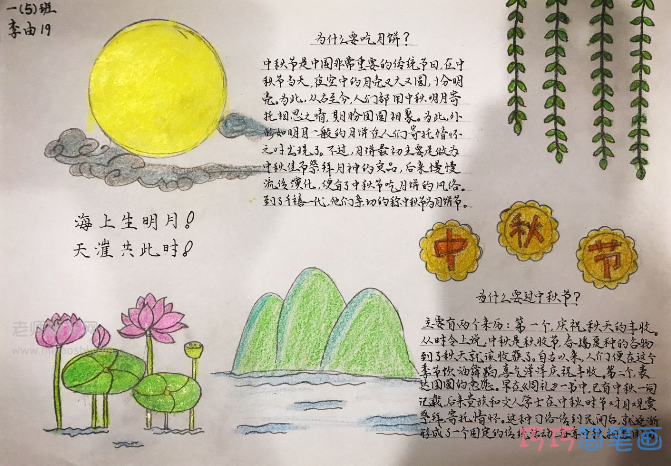 一(5)班
李由19
为什么要吃月饼?
中秋节是中国非常重要的传统节日,在中
秋节当天,夜空中的月亮又大又圆,十分明
亮。为此,从古至今,人们都用中秋明月寄
托相思之情,期盼团圆相聚。为此,外
形如明月一般的月饼在人们寄托情怀
时出现了。不过,月饼最初主要是做为
中秋佳节祭拜月神的贡品,后来慢慢
流传演化,便有了中秋节吃月饼的风俗。
到了年轻一代,他们亲切的称中秋节为月饼节。
海上生明月!
天涯共此时!
中
秋
节
为什么要过中秋节?
主要有两个来历:第一个,庆祝秋天的丰收。
从时令上说,中秋是秋收节,各播夏种的谷物
到了秋天就该收获了。自古以来,人们便在这个
季节饮酒舞蹈,喜气洋洋庆祝丰收。第二个,表
达团圆的思念。早在《周礼》一书中,已有中秋一词
记载。后来贵族和文人学士在中秋时节对月观赏
祭拜,寄托情怀。这种习俗传到民间后,就逐渐
形成了一个固定的传统活动
巧巧简笔画